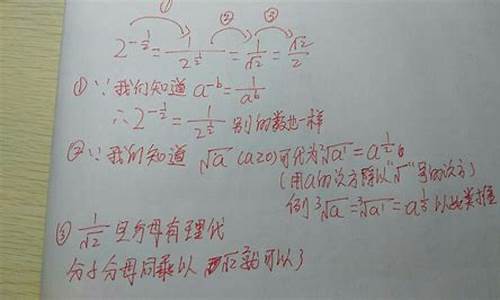 ① ② ③
2^{-\frac{1}{2}} = \frac{1}{2^{\frac{1}{2}}} = \frac{1}{\sqrt{2}} = \frac{\sqrt{2}}{2}
① ∵ 我们知道 a^{-b} = \frac{1}{a^b}
∴ 2^{-\frac{1}{2}} = \frac{1}{2^{\frac{1}{2}}} 别的数也一样
② ∵ 我们知道 \sqrt{a} (a≥0) 可化为 \sqrt[2]{a^1} = a^{\frac{1}{2}}
(用a的次方除以"√"号的次方)
例 \sqrt[3]{a} = \sqrt[3]{a^1} = a^{\frac{1}{3}} 以此类推
③ \frac{1}{\sqrt{2}} 分母有理化
分子分母同乘以 √2 就可以了